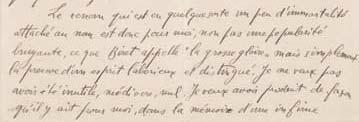 Le renom qui est en quelque sorte un peu d'immortalité
attaché au nom est donc pour moi, non pas une popularité
bruyante, ce que Bizet appelle "la grosse gloire", mais simplement
la preuve d'un esprit laborieux et distingué. Je ne veux pas
avoir été inutile, médiocre, nul. Je veux avoir produit de façon
qu'il y ait pour moi, dans la mémoire d'une infime